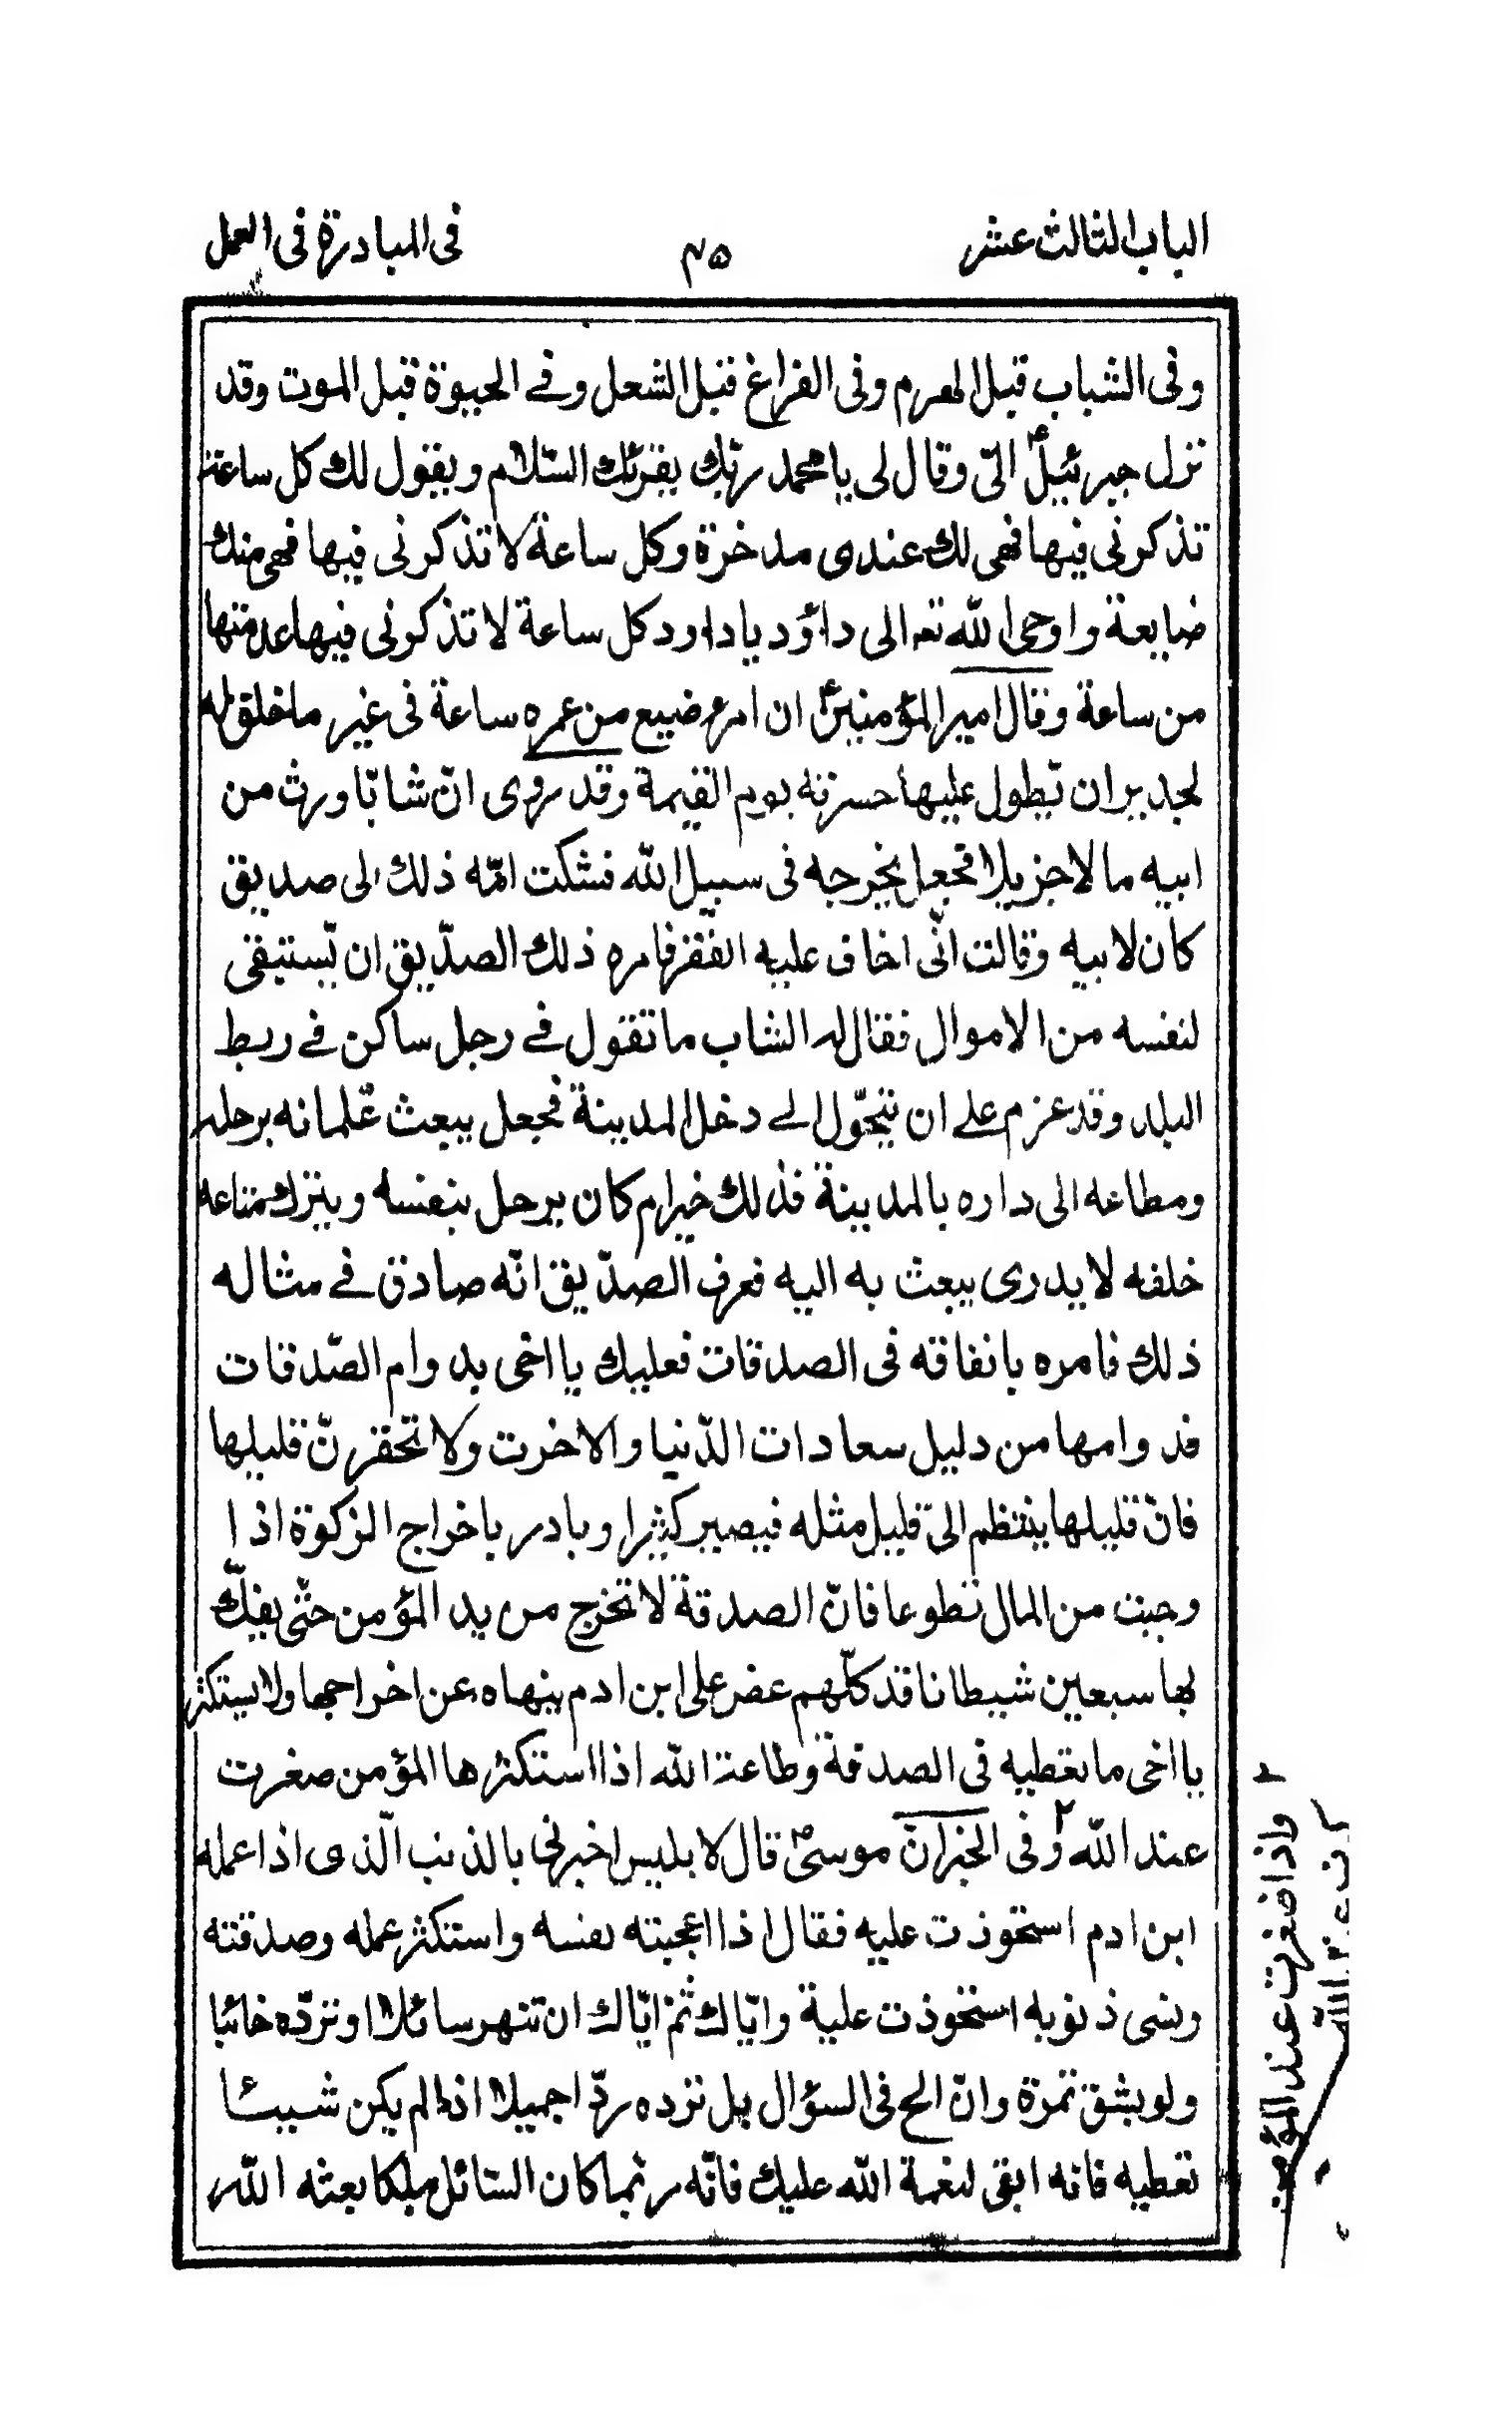 الباب الثالث عشر ٤٥ فى المبادرة فى العمل
وفى الشباب قبل الهرم وفى الفراغ قبل الشغل وفے الحيوة قبل الموت وقد
نزل جبرئيلؑ الىّ وقال لى يا محمد ربّك يقرئك السّلام ويقول لك كل ساعة
تذكرونى فيها فهى لك عندى مدخرة وكل ساعة لا تذكرونى فيها فهى منك
ضايعة واوحى الله تعہ الى داؤد يا داود كل ساعة لا تذكرونى فيها عدمتها
من ساعة وقال امير المؤمنينؑ ان امرء ضيع من عمره ساعة فى غير ما خلق له
لجدير ان يّطول عليها حسرته يوم القيمة وقد روى انّ شابّا ورث من
ابيه مالا جزيلا فجعل يخرجه فى سبيل الله فشكت امّه ذلك الى صديق
كان لابيه وقالت انّى اخاف عليه الفقر فامره ذلك الصدّيق ان يّستبقى
لنفسه من الاموال فقال له الشاب ما تقول فے رجل ساكن فے ربط
البلد وقد عزم علے ان يتحوّل الے دخل المدينة فجعل يبعث غلمانه برحله
ومطاعه الى داره بالمدينة فذلك خير ام كان يرحل بنفسه ويترك متاعه
خلفه لا يدرى يبعث به اليه فعرف الصدّيق انّه صادق فے مثاله
ذلك فامره بانفاقه فى الصدقات فعليك يا اخى بدوام الصّدقات
فدوامها من دليل سعادات الدّنيا والاخرت ولا تحقرنّ قليلها
فانّ قليلها ينتظم الى قليل مثله فيصير كثيرا وبادر باخراج الزكوة اذا
وجبت من المال تطوعا فانّ الصدقة لا تخرج من يد المؤمن حتّى يفكّ
بها سبعين شيطانا قد كلّهم عض على ابن ادم ينهاه عن اخراجها ولا يستكثر
يا اخى ما تعطيه فى الصدقة وطاعة الله اذا استكثرها المؤمن صغرت
عند الله ٢ وفى الخبر انّ موسىؑ قال لابليس اخبرنى بالذنب الّذى اذا عمله
ابن ادم استحوذت عليه فقال اذا اعجبته نفسه واستكثر عمله وصدقته
ونسى ذنوبه استحوذت علية وايّاك ثمّ ايّاك ان تنهر سائلا او تردّه خائبا
ولو بشق تمرة وانّ الح فى السؤال بل ترده ردّا جميلا اذا لم يكن شيئا
تعطيه فانه ابقى لنعمة الله عليك فانّه ربّما كان السّائل ملكا بعثه الله
٢ واذا صغرت عند المؤمن